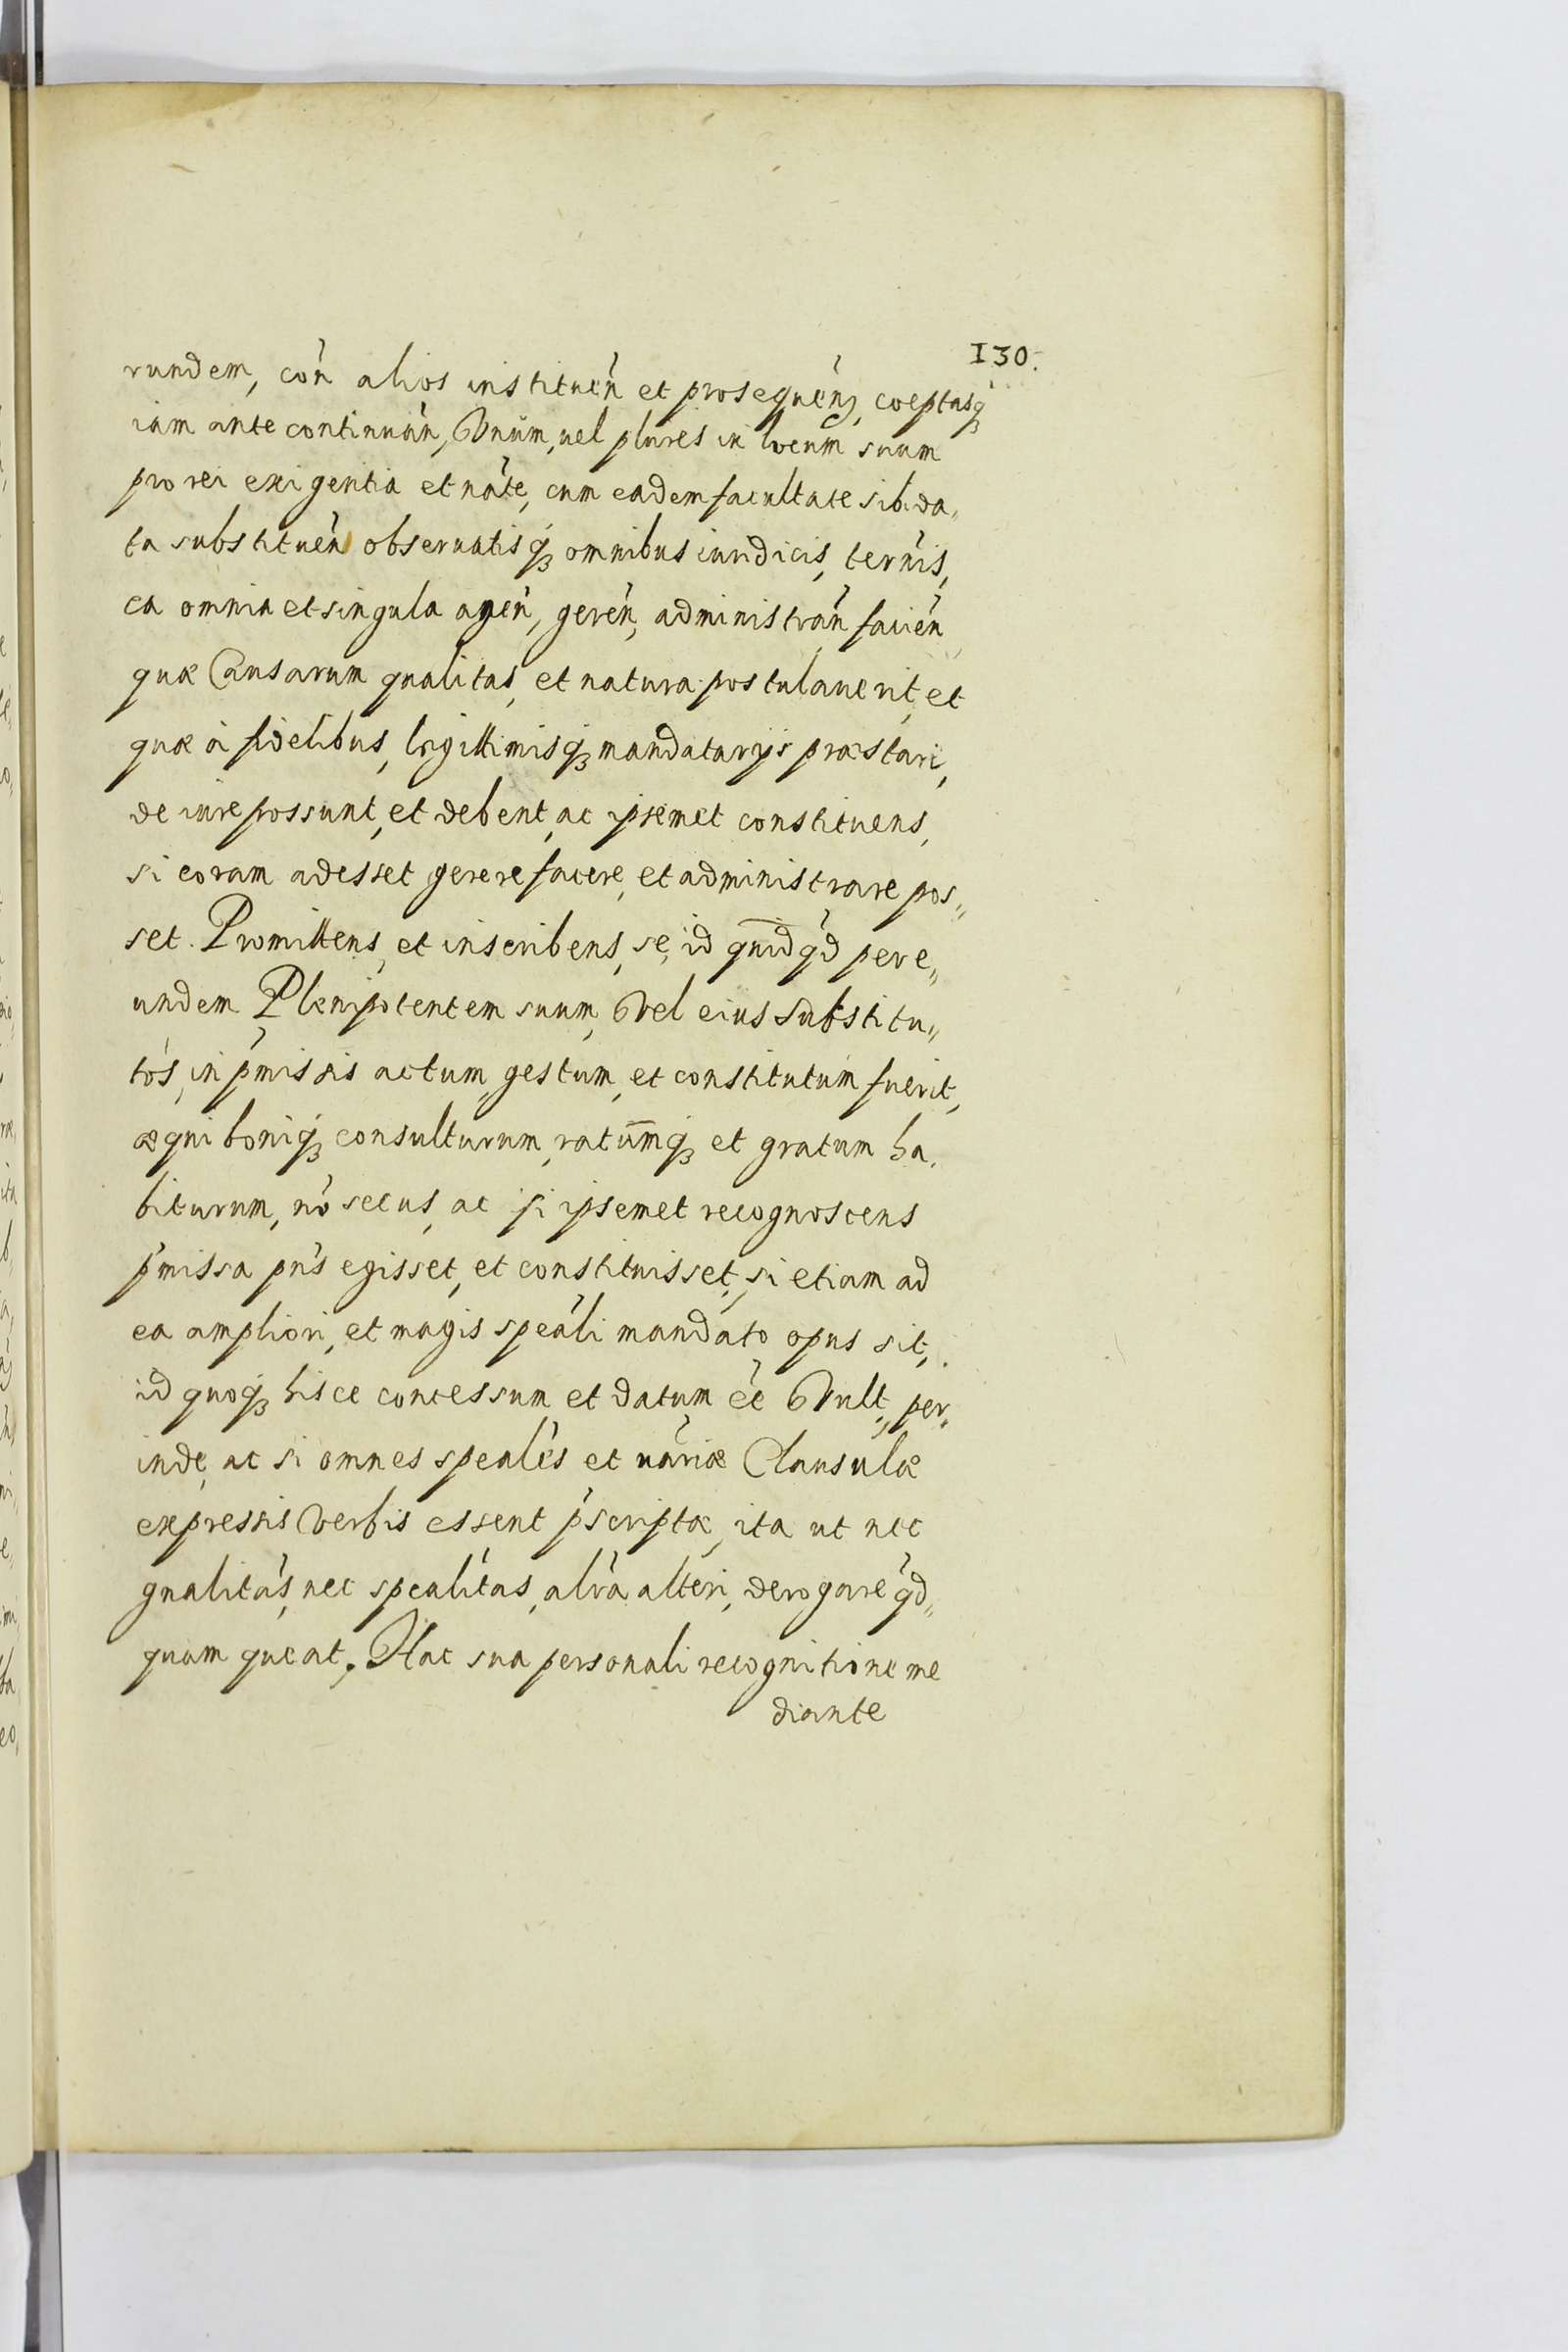 130.
rundem, cön alios instituen̈ et prosequen̈, coeptasq́
iam ante continuan̈, Vnum, uel plures in locum suum
pro rei exigentia et nate, cum eadem facultate sibi da„
ta substituen̈ obseruatisq́ʒ omnibus iuridicis, ternìs,
ea omnia et singula agen̈, geren̈, administran̈ facien̈
quæ Causarum qualitas, et natura postulauerit, et
quæ à fidelibus, legittimisq́ʒ mandatarijs præstari,
de iure possunt, et debent, ac ipsemet constituens,
si coram adesset gerere facere, et administrare pos„
set. Promittens, et inscribens, se, id quidq̀d per e„
undem Plenipotentem suum, Vel eius Substitu„
tos, in p̀missis actum, gestum, et constitutum fuerit,
æqui boniq́ʒ consulturum, ratumq́ʒ et gratum ha„
biturum, nò secus, ac si ipsemet recognoscens
p̀missa pǹs egisset, et constituisset, si etiam ad
ea ampliori, et magis speàli mandato opus sit,
id quoq́ʒ hisce concessum et datum èe Vult, per„
inde, ac si omnes speales et nàriæ Clausulæ
expressis Verbis essent p̀scriptæ, ita ut nec
gnalitàs, nec spealitas, alrà alteri, derogare q̀d„
quam queat, Hac sua personali recognitione me
diante